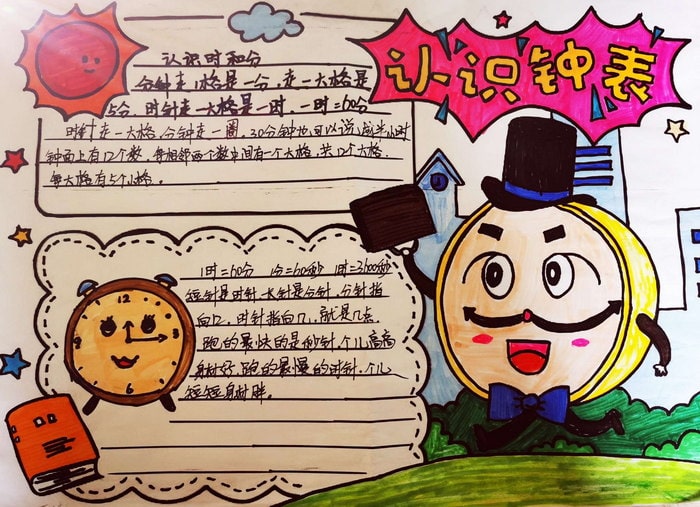 认识钟表
认识时和分
分针走1小格是一分，走一大格是
5分，时针走一大格是一时，一时=60分
时针走一大格，分针走一圈，30分钟也可以说成半小时
钟面上有12个数，每相邻两个数中间有一个大格，共12个大格，
每大格有5个小格。
1时=60分 1分=60秒 1时=3600秒
短针是时针，长针是分针，分针指
向12，时针指向几，就是几点，
跑的最快的是秒针，个儿高高
身材好，跑的最慢的时针，个儿
短短身材胖。
12
3